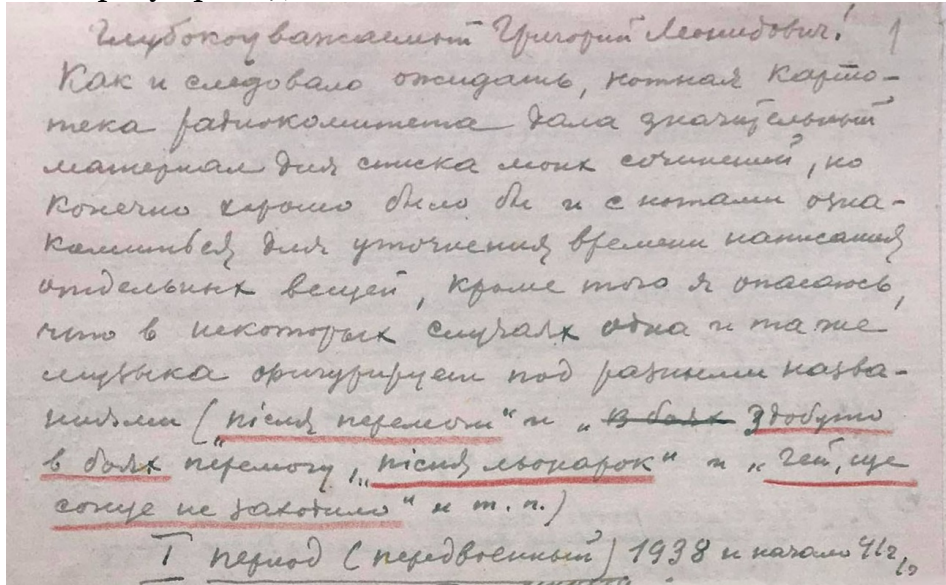 Глубокоуважаемый Григорий Леонидович! 1
Как и следовало ожидать, нотная карто-
тека радиокомитета дала значительный
материал для списка моих сочинений, но
конечно хорошо было бы и с нотами озна-
комиться для уточнения времени написания
отдельных вещей, кроме того я опасаюсь,
что в некоторых случаях одна и та же
музыка фигурирует под разными назва-
ниями („пісня перемоги“ и „в боях Здобуто
в боях перемогу, „пісня льонарок“ и „гей, ще
сонце не заходило“ и т. п.)
I период (передвоенный) 1938 и начало 41 г.